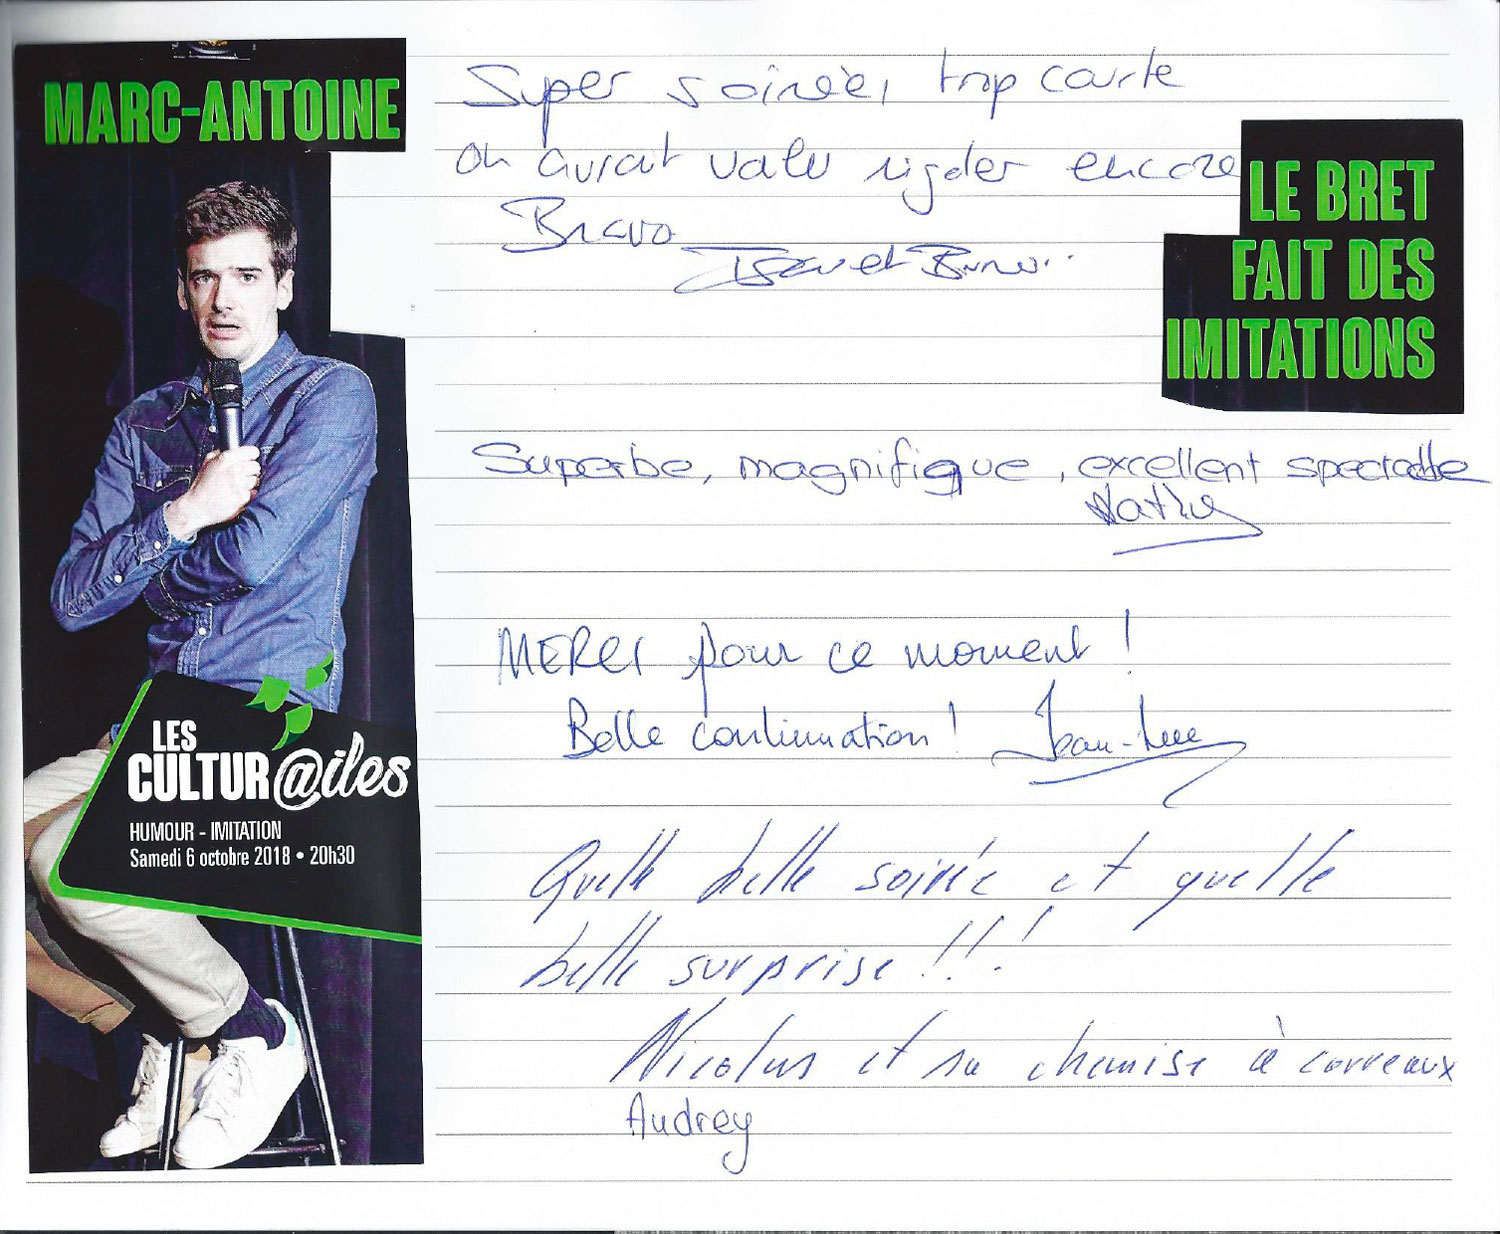 MARC-ANTOINE
LE BRET
FAIT DES
IMITATIONS
LES
CULTUR@iles
HUMOUR - IMITATION
Samedi 6 octobre 2018 • 20h30
Super soirée, trop courte
On aurait valu rigoler encore
Bravo
et Bruno
Superbe, magnifique, excellent spectacle
MERCI pour ce moment !
Belle continuation ! Jean-Luc
Quelle belle soirée et quelle
belle surprise !!!
Nicolas et sa chemise à carreaux
Audrey